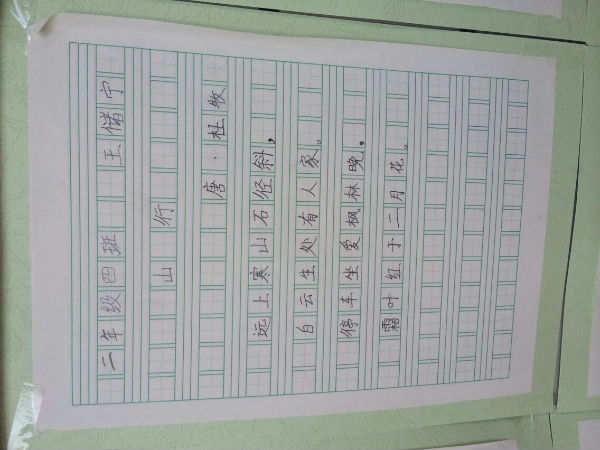 二年级四班 王储宁
山行
唐、杜牧
远上寒山石径斜，
白云生处有人家。
停车坐爱枫林晚，
霜叶红于二月花。